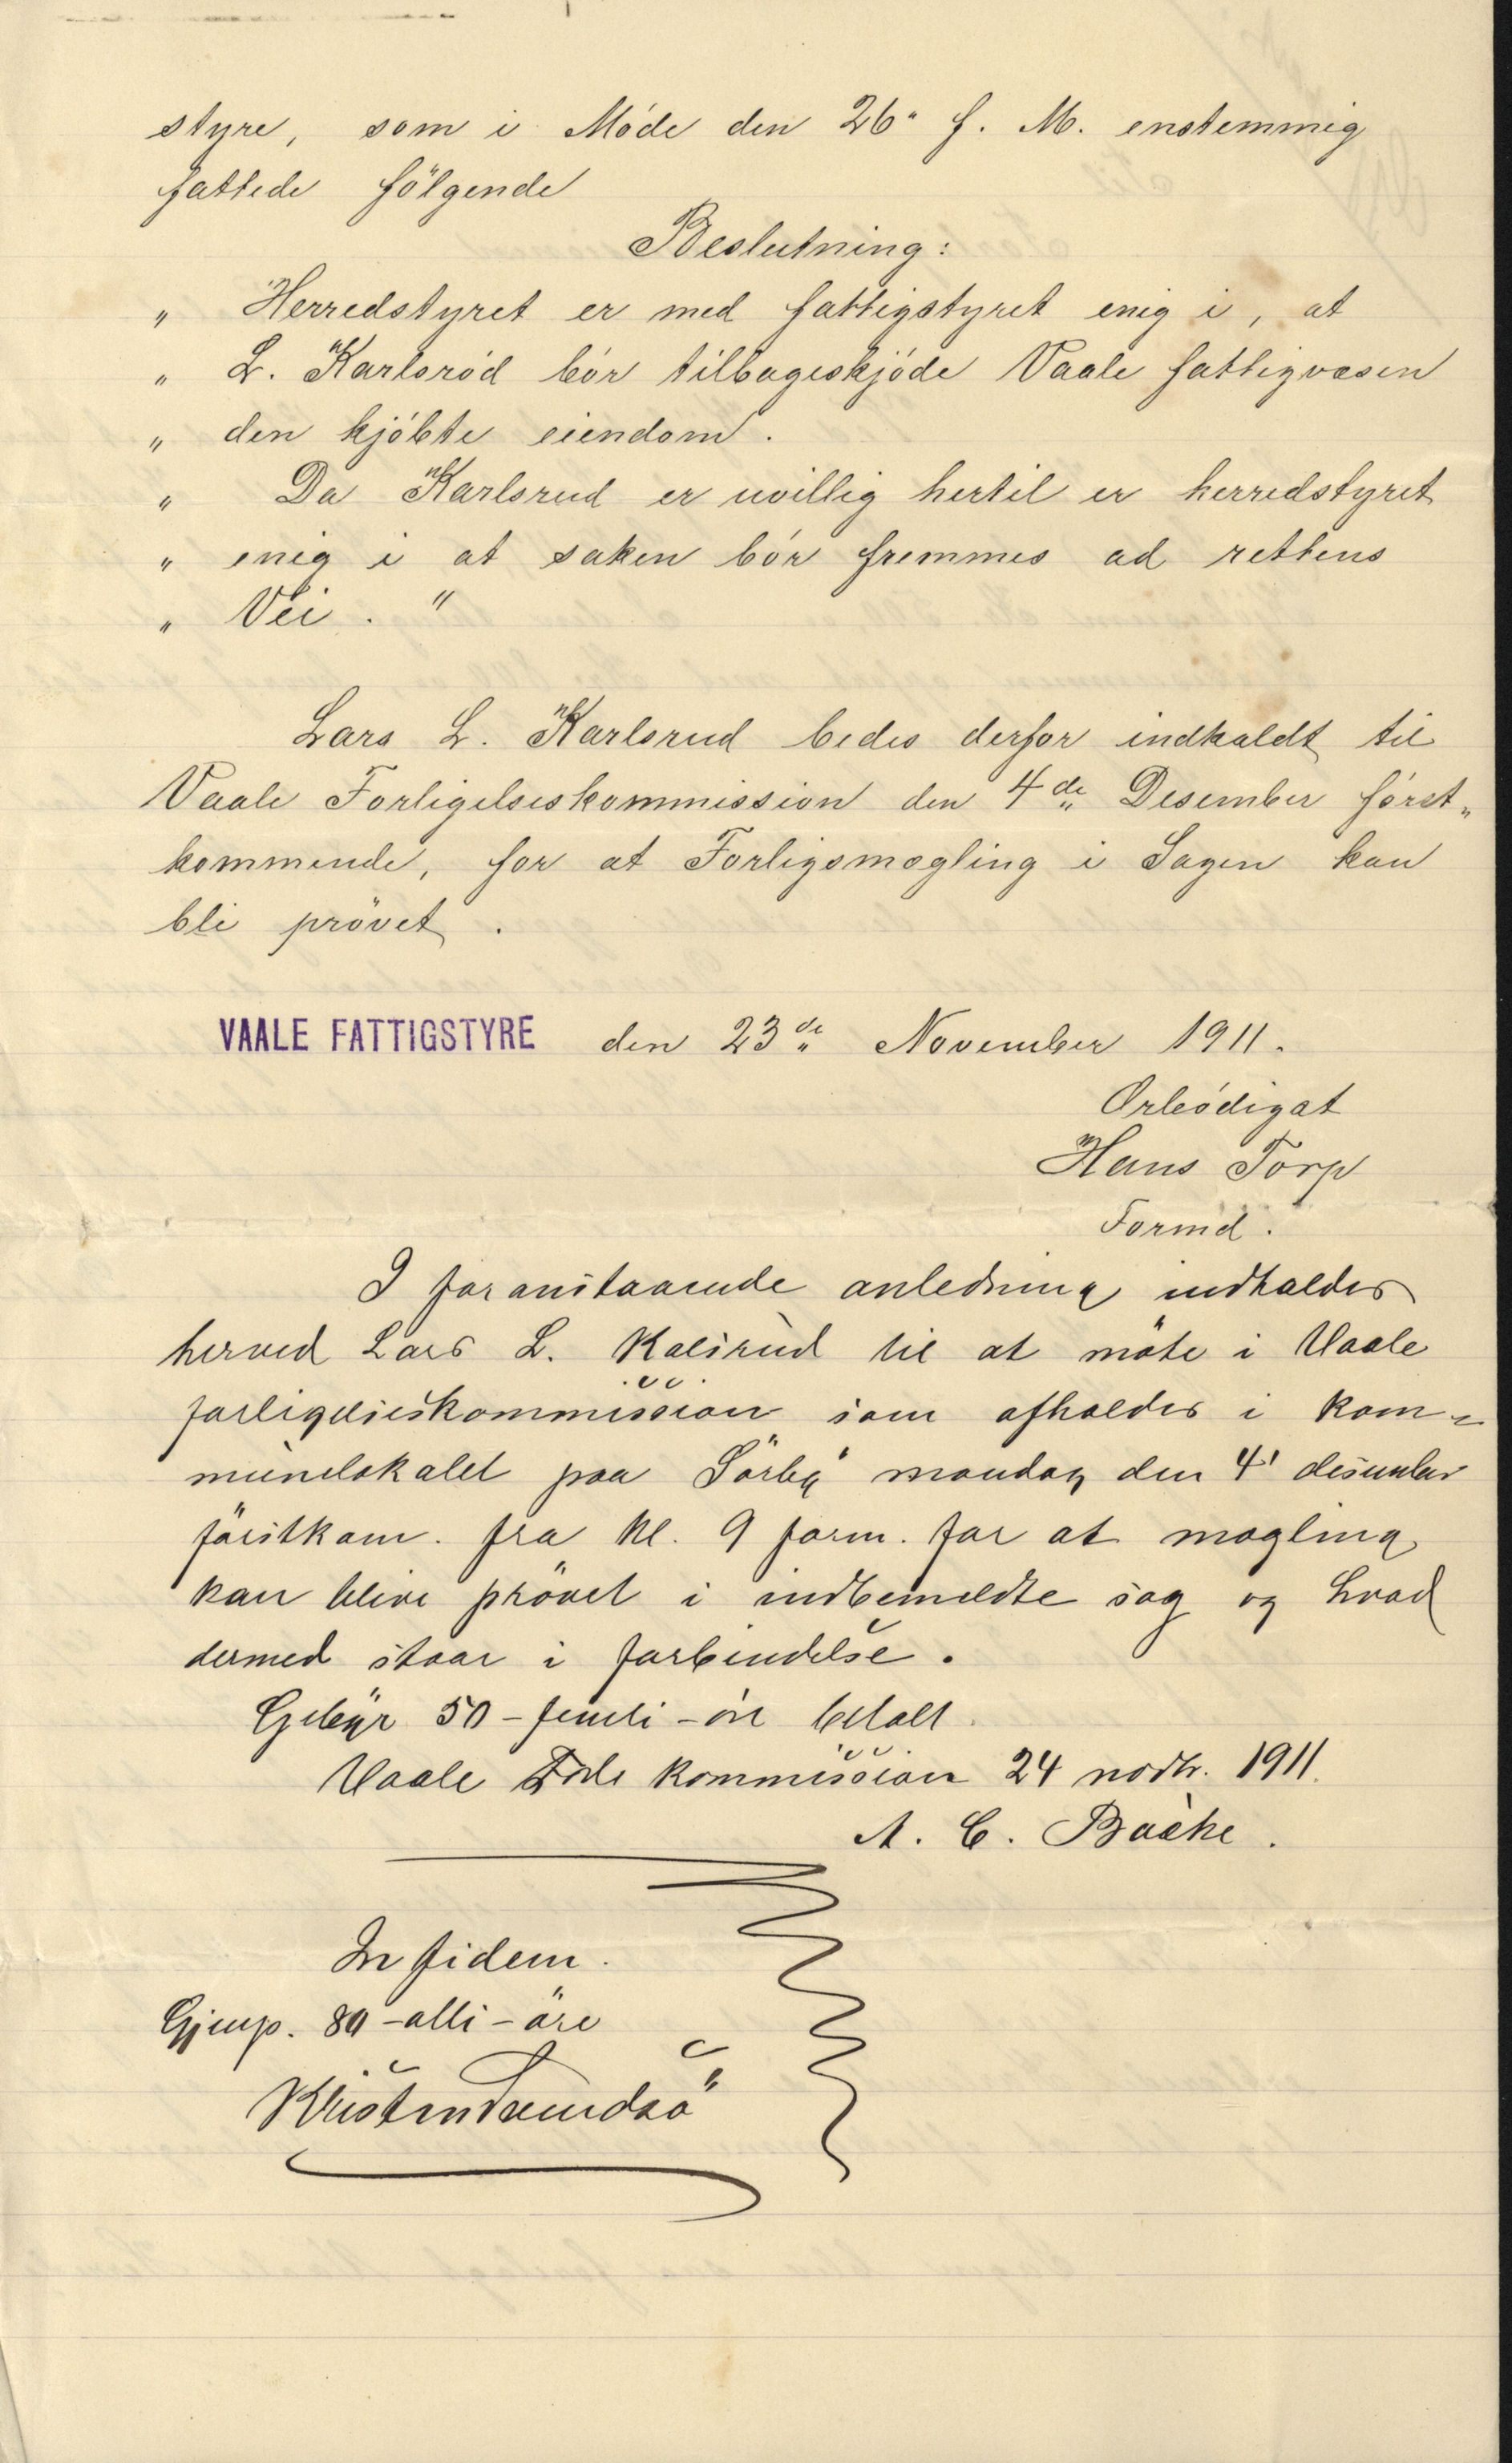 styre, som i Møde den 26" f. M. enstemmig
fattede følgende
Beslutning:
" Herredstyret er med fattigstyret enig i, at
" L. Karlsrød bør tilbageskjøde Vaale fattigvæsen
" den kjøbte eiendom.
" Da Karlsrud er uvillig hertil er herredstyret
" enig i at saken bør fremmes ad rettens
" Vei. "
Lars L. Karlsrud bedes derfor indkaldt til
Vaale Forligelseskommission den 4de Desember først„
kommende, for at Forligsmægling i Sagen kan
bli prøvet.
VAALE FATTIGSTYRE den 23de November 1911.
Ærbødigst
Hans Torp
Formd.
I foranstaaende anledning indkaldes
herved Lars L. Kalsrud til at møte i Vaale
forligelseskommission som afholdes i kom=
munelokalet paa Sörby mandag den 4' desember
förstkom. fra kl. 9 form. for at mægling
kan blive prövet i indbemeldte sag og hvad
dermed staar i forbindelse.
Gebyr 50 - femti - øre betalt.
Vaale kommission 24 novbr. 1911.
A. C. Bache.
In fidem.
Gjenp. 80 - otti - öre